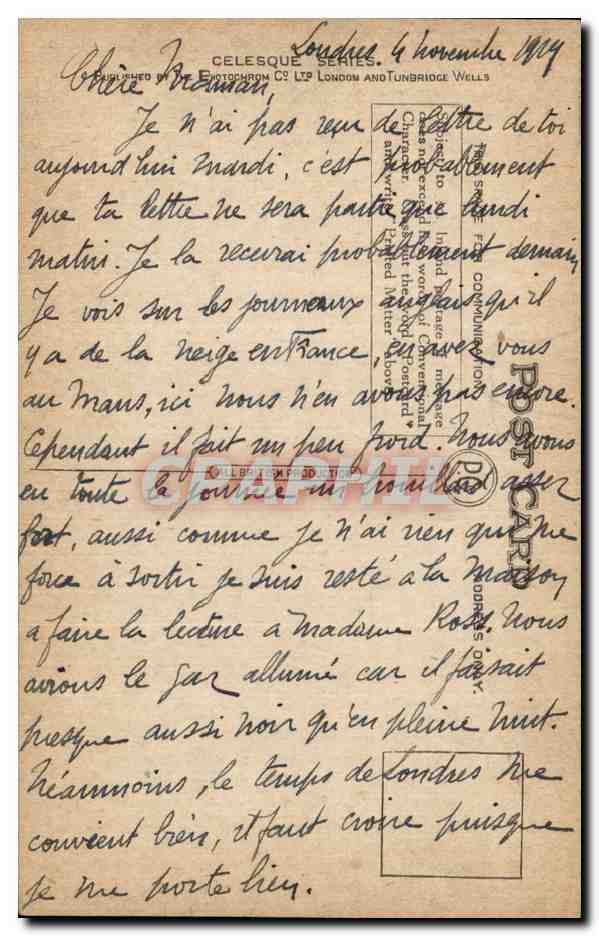 Londres. 4 novembre 1919
CELESQUE SERIES.
PUBLISHED BY THE PHOTOCHROM CO LTD LONDON AND TUNBRIDGE WELLS
Chère Maman,
Je n'ai pas reçu de lettre de toi
aujourd'hui mardi, c'est probablement
que ta lettre ne sera partie que lundi
matin. Je la recevrai probablement demain
Je vois sur les journaux anglais qu'il
y a de la neige en France, en avez vous
au Mans, ici nous n'en avons pas encore.
Cependant il fait un peu froid. Nous avons
eu toute la journée un brouillard assez
fort, aussi comme je n'ai rien qui me
force à sortir je suis resté à la maison
a faire la lecture à Madame Ross. Nous
avions le gaz allumé car il faisait
presque aussi noir qu'en pleine nuit.
Néanmoins, le temps de Londres me
convient bien, il faut croire puisque
je me porte bien.
POST CARD
ADDRESS ONLY.
THIS SPACE FOR COMMUNICATION
Subject to Inland postage if message
does not exceed five words of Conventional
Character. Cross out the word "Postcard"
and write "Printed Matter" above
ALL BRITISH PRODUCTION